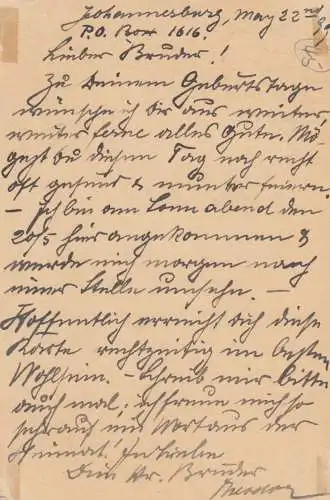 Johannesburg, May 22nd
P.O. Box 1616.
Lieber Bruder!
Zu Deinem Geburtstage
wünsche ich dir aus weiter,
weiter ferne alles Gute. Mö-
gest du diesen Tag noch recht
oft gesund & munter feiern.
– Ich bin am Sonnabend den
20/5 hier angekommen &
werde mich morgen nach
einer Stelle umsehn. –
Hoffentlich erreicht dich diese
Karte rechtzeitig im besten
Wohlsein. – Schreib mir bitte
auch mal, ich freue mich so
sehr auch ein Wort aus der
Heimat! In Liebe
Dein Br. Bruder